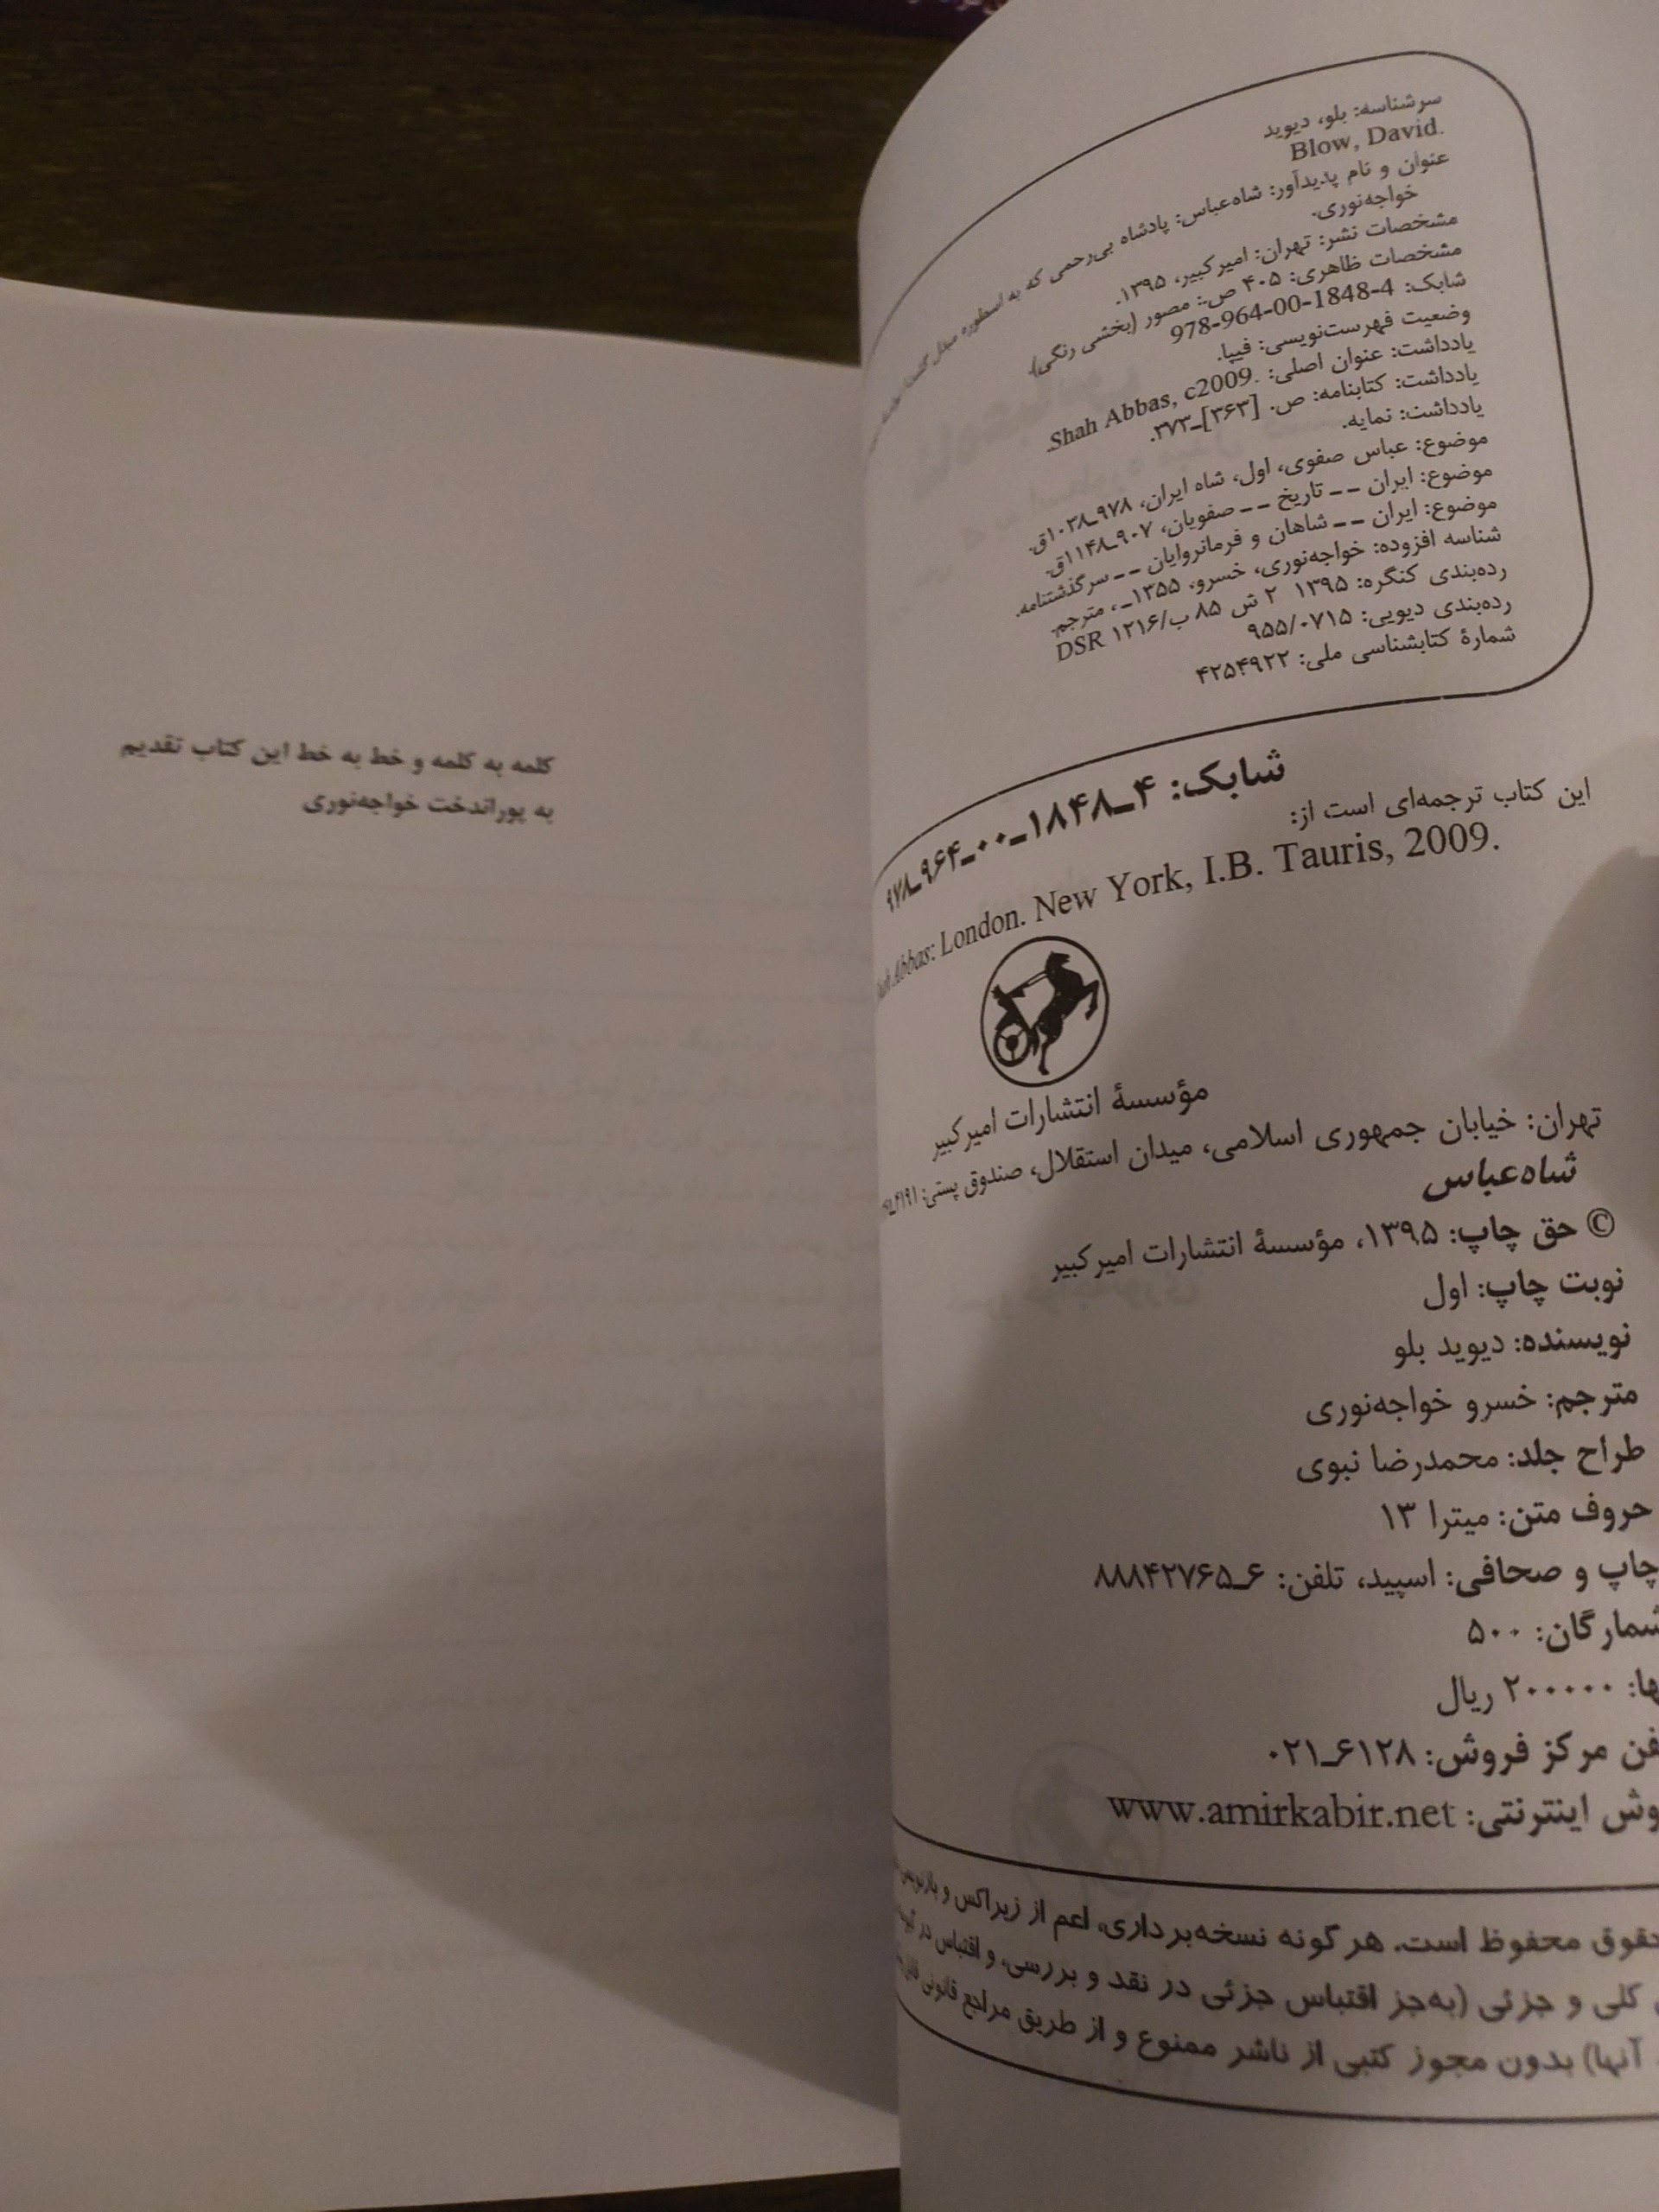 سرشناسه: بلو، دیوید
Blow, David.
عنوان و نام پدیدآور: شاه‌عباس: پادشاه بی‌رحمی که به اسطوره مبدل گشت
خواجه‌نوری.
مشخصات نشر: تهران: امیرکبیر، ۱۳۹۵.
مشخصات ظاهری: ۴۰۵ ص.: مصور (بخشی رنگی).
شابک: 978-964-00-1848-4
وضعیت فهرست‌نویسی: فیپا.
یادداشت: عنوان اصلی: Shah Abbas, c2009.
یادداشت: کتابنامه: ص. [۳۶۳]ـ۳۷۳.
یادداشت: نمایه.
موضوع: عباس صفوی، اول، شاه ایران، ۹۷۸ـ۱۰۳۸ق.
موضوع: ایران -- تاریخ -- صفویان، ۹۰۷ـ۱۱۴۸ق.
موضوع: ایران -- شاهان و فرمانروایان -- سرگذشتنامه.
شناسه افزوده: خواجه‌نوری، خسرو، ۱۳۵۵ـ، مترجم.
رده‌بندی کنگره: ۱۳۹۵ ۲ ش ۸۵ ب/DSR ۱۲۱۶
رده‌بندی دیویی: ۹۵۵/۰۷۱۵
شمارهٔ کتابشناسی ملی: ۴۲۵۴۹۲۲
شابک: ۴ـ۱۸۴۸ـ۰۰ـ۹۶۴ـ۹۷۸
این کتاب ترجمه‌ای است از:
Abbas: London. New York, I.B. Tauris, 2009.
مؤسسهٔ انتشارات امیرکبیر
تهران: خیابان جمهوری اسلامی، میدان استقلال، صندوق پستی:
شاه‌عباس
© حق چاپ: ۱۳۹۵، مؤسسهٔ انتشارات امیرکبیر
نوبت چاپ: اول
نویسنده: دیوید بلو
مترجم: خسرو خواجه‌نوری
طراح جلد: محمدرضا نبوی
حروف متن: میترا ۱۳
چاپ و صحافی: اسپید، تلفن: ۶ـ۸۸۸۴۲۷۶۵
شمارگان: ۵۰۰
ها: ۲۰۰۰۰۰ ریال
فن مرکز فروش: ۶۱۲۸ـ۰۲۱
وش اینترنتی: www.amirkabir.net
قوق محفوظ است. هرگونه نسخه‌برداری، اعم از زیراکس و بازنویسی،
کلی و جزئی (به‌جز اقتباس جزئی در نقد و بررسی، و اقتباس در
آنها) بدون مجوز کتبی از ناشر ممنوع و از طریق مراجع قانونی
کلمه به کلمه و خط به خط این کتاب تقدیم
به پوراندخت خواجه‌نوری